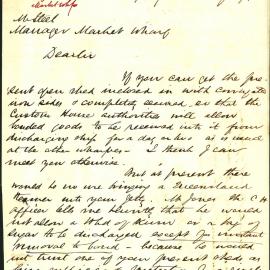 M Steel
Manager Market Wharf
Dear Sir
If you can get the pre-
sent open shed inclosed in with corrugated
iron sides & completely secured, so that the
Custom House authorities will allow
bonded goods to be received into it from
discharging ship for a day or two as is usual
at the other wharfes - I think I can
meet you otherwise.
But at present there
would be no use bringing a Queensland
Steamer into your Jetty. Mr Jones the C.H.
officer tells me that he would
not allow a
sugar to be discharged except for instant
removal to bond - because he would
not trust one of your present sheds, as